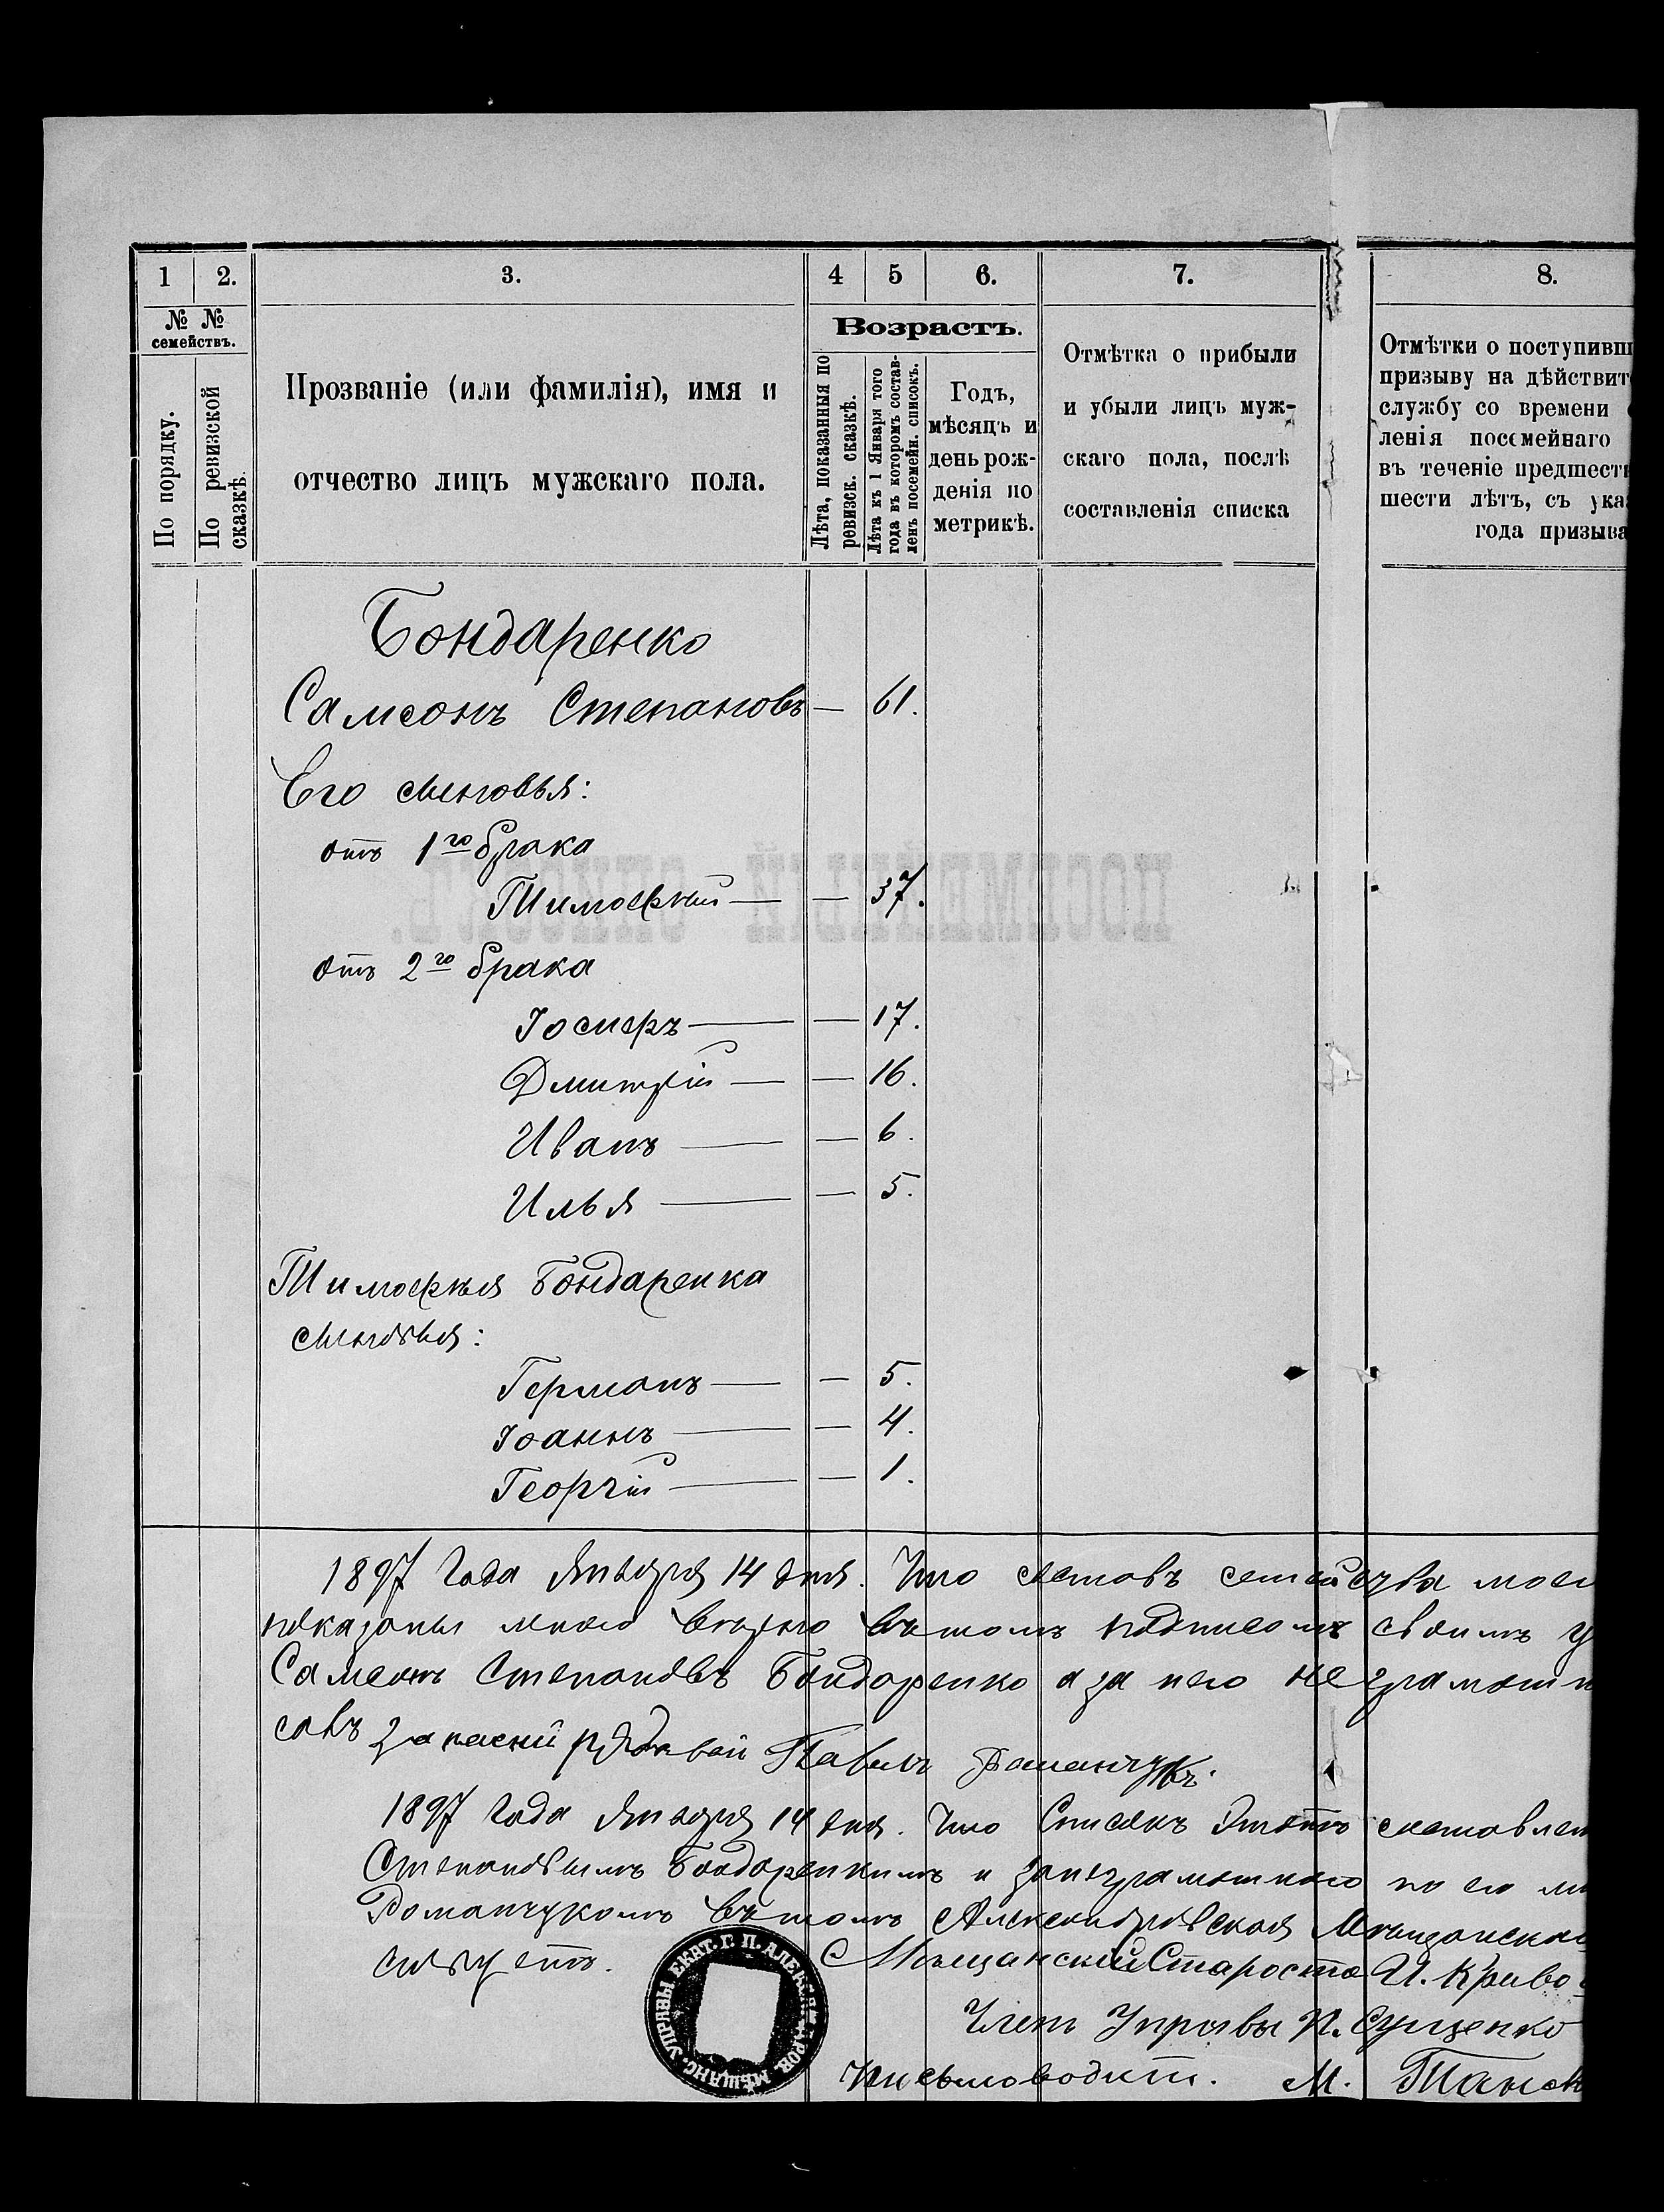 1 2. 3. 4 5 6. 7. 8.
№ № семействъ.
По порядку.
По ревизской сказкѣ.
Прозваніе (или фамилія), имя и
отчество лицъ мужскаго пола.
Возрастъ.
Лѣта, показанныя по ревизск. сказкѣ.
Лѣта къ 1 Января того года въ которомъ состав- ленъ посемейн. списокъ.
Годъ,
мѣсяцъ и
день рож-
денія по
метрикѣ.
Отмѣтка о прибыли
и убыли лицъ муж-
скаго пола, послѣ
составленія списка
Отмѣтки о поступивш
призыву на дѣйствит
службу со времени
ленія посемейнаго
въ теченіе предшест
шести лѣтъ, съ ука
года призыва
Бондаренко
Самсонъ Степановъ — 61.
Его сыновья:
отъ 1го брака
Тимофѣй — — 37.
ПОСЕМЕЙНЫЙ СПИСОКЪ.
отъ 2го брака
Іосифъ — — 17.
Дмитрій — — 16.
Иванъ — — 6.
Илья — — 5.
Тимофѣя Бондаренка
сыновья:
Германъ — — 5.
Іоаннъ — — 4.
Георгій — — 1.
1897 года Января 14 дня. Что составъ семейства мое
показаны мною вѣрно въ томъ подписомъ своимъ у
Самсонъ Степановъ Бондаренко а за него неграмотн
совъ запасный рядовой Павелъ Романчукъ.
1897 года Января 14 дня. Что Списокъ этотъ составлен
Степановымъ Бондаренкимъ и за неграмотнаго по его
Романчукомъ въ томъ Александровская Мѣщанска
Мѣщанскій Староста И. Криво
Членъ Управы И. Сущенко
Письмоводит. М. Танс
ЕКАТ. Г. П. АЛЕКСАН-ДРОВ. МѢЩАНС. УПРАВЫ